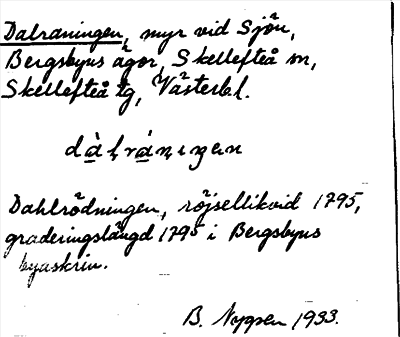 Dalraningen, myr vid Sjön,
Bergsbyns ägor, Skellefteå sn,
Skellefteå tg, Västerb l.
dàlráningen
Dahlrödningen, röjsellikvid 1795,
graderingslängd 1795 i Bergsbyns
byaskrin.
B. Nygren 1933.